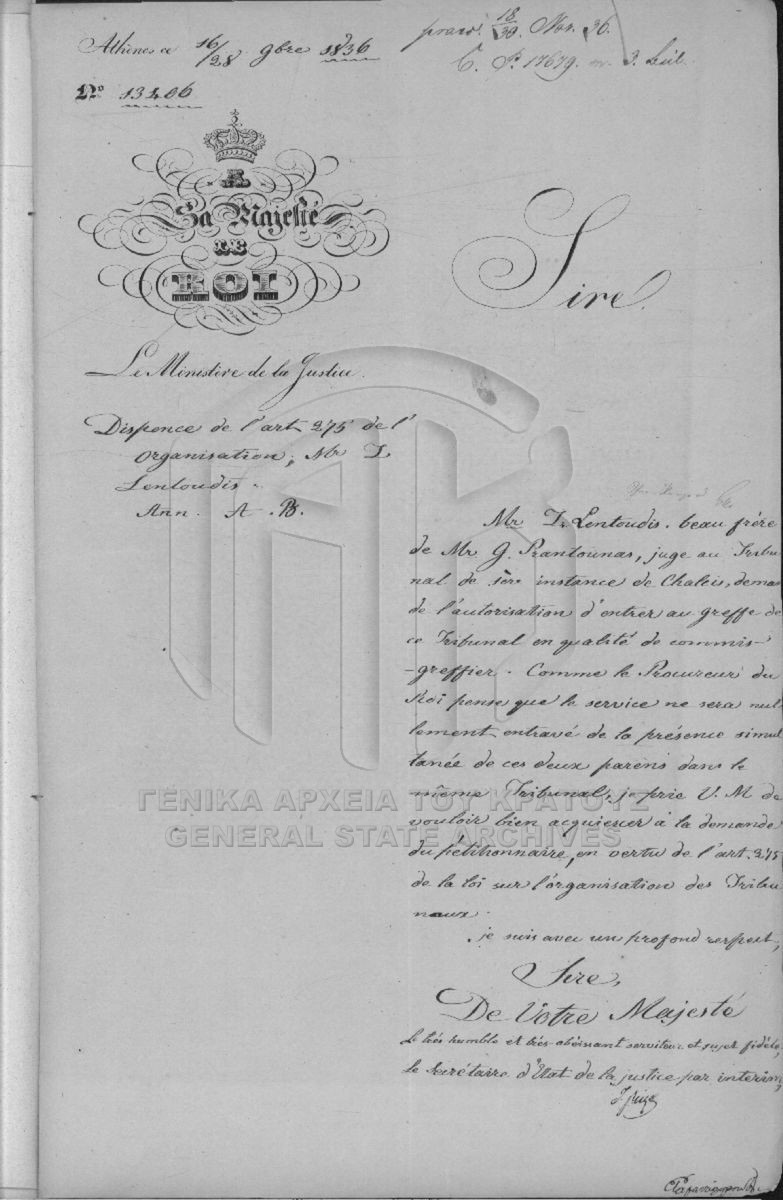 Athènes ce 16/28 9bre 1836
praes. 18/30. Nov. 36.
C. P. 17679.
Nº 13406
A
Sa Majesté
LE
ROI
Sire.
Le Ministère de la Justice.
Dispence de l'art. 275 de l'
Organisation, Mr
Lentoudis.
Ann. A. B.
Mr Lentoudis. beau frére
de Mr G. Prantounas, juge au Tribu
nal de 1ère instance de Chalcis, deman
de l'autorisation d'entrer au greffe de
ce Tribunal en qualité de commis-
-greffier. Comme le Procureur du
Roi pense que le service ne sera nul
lement entravé de la présence simul
tanée de ces deux parens dans le
même Tribunal, je prie V. M de
vouloir bien acquiescer à la demande
du pétitionnaire, en vertu de l'art. 275
de la loi sur l'organisation des Tribu
naux.
je suis avec un profond respect,
Sire,
De Votre Majesté
Le très humble et très-obéissant serviteur et sujet fidèle,
Le Secrétaire d'Etat de la justice par interim,
ΓΕΝΙΚΑ ΑΡΧΕΙΑ ΤΟΥ ΚΡΑΤΟΥΣ
GENERAL STATE ARCHIVES